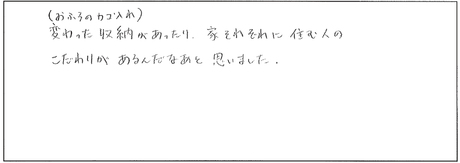 (おふろのカゴ入れ)
変わった収納があったり、家それぞれに住む人の
こだわりがあるんだなあと思いました。